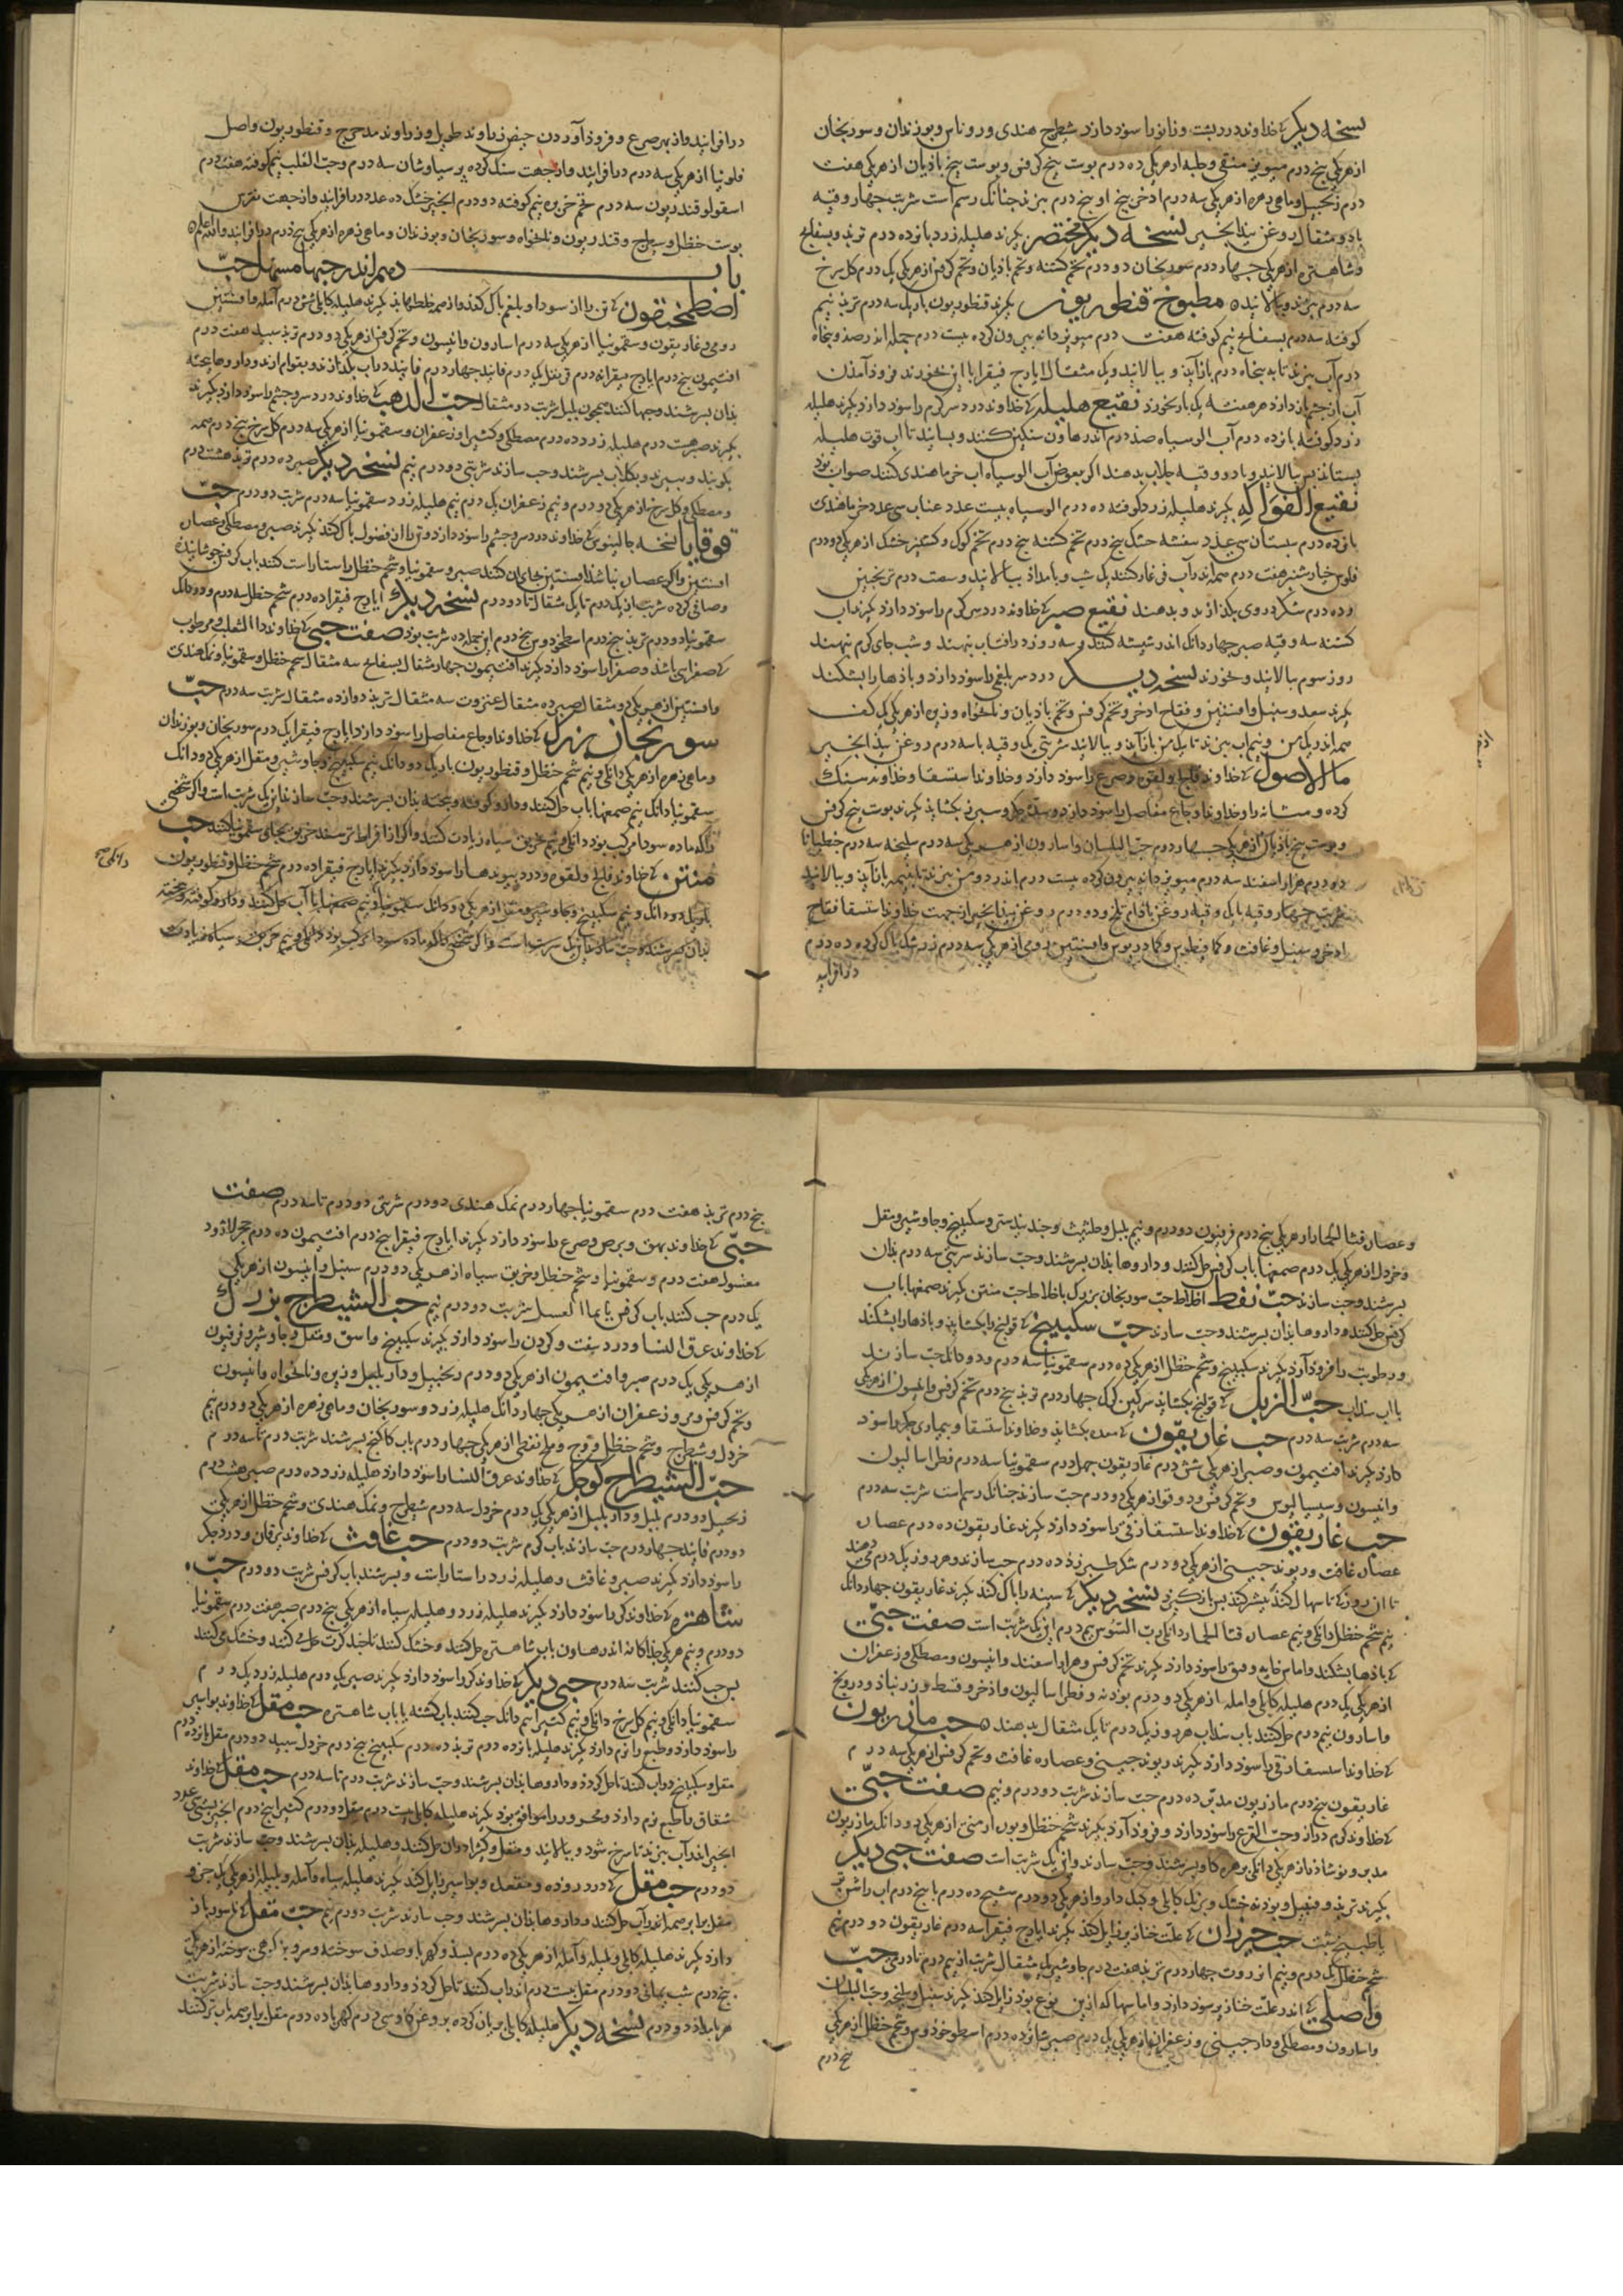 نسخه دیکر که خداوند درد پشت و زانو را سوذ دارذ شیطرج هندی و روناس و بوزندان و سورنجان
از هر یکی پنج درم میویز منقی و حلبه از هر یکی ده درم پوست بیخ کرفس و پوست بیخ باذیان از هر یکی هفت
درم زنجبیل و ماهی زهره از هر یکی سه درم اذخر پنج درم بپزند چنانک رسم است شربت چهار وقیه
با دو مثقال روغن بیذ انجیر نسخه دیکر مختصر بکیرند هلیله زرد پانزده درم تربذ و بسفایج
و شاهتره از هر یکی چهار درم سورنجان دو درم تخم کشنه و تخم باذیان و تخم کرفس از هر یکی یک درم کل سرخ
سه درم بپزند و بپالایند مطبوخ قنطوریون بکیرند قنطوریون باریک سه درم تربذ نیم
کوفته سه درم بسفایج نیم کوفته هفت درم میویز دانه بیرون کرده بیست درم جمله اندر صذ و پنجاه
درم آب بپزند تا به پنجاه درم بازآیذ و بپالایند و یک مثقال ایارج فیقرا با این بخورند فروذ آمدن
آب از چشم بازدارذ هر هفته یک بار بخورذ نقیع هلیله که خداوند درد سر کرم را سوذ دارذ بکیرند هلیله
زرد کوفته پانزده درم آب الو سیاه صذ درم اندر هاون سنکین کنند و بسایند تا اب قوت هلیله
بستاند پس بپالایند و با دو وقیه جلاب بدهند اکر بعوض آب الو سیاه اب خرما هندی کنند صواب بوذ
نقیع الفواکه بکیرند هلیله زرد کوفته ده درم الو سیاه بیست عدد عناب سی عدد خرما هندی
پانزده درم سبستان سی عدد بنفشه خشک پنج درم تخم کشنه پنج درم تخم کوک و کشنیز خشک از هر یکی دو درم
فلوس خیار شنبر هفت درم همه اندر آب فرغار کنند یک شب و بامداذ بپالایند و بیست درم ترنجبین
و ده درم شکر در وی بکذازند و بدهند نقیع صبر که خداوند درد سر کرم را سوذ دارذ بکیرند اب
کشنه سه وقیه صبر چهار دانک اندر شیشه کنند و سه روز در افتاب بنهند و شب جای کرم بنهند
روز سوم بپالایند و بخورند نسخه دیکر درد سر بلغمی را سوذ دارذ و باذها را بشکند
بکیرند سعد و سنبل و افسنتین و فقاح اذخر و تخم کرفس و تخم باذیان و نانخواه و زیره از هر یکی یک کف
همه اندر یک من و نیم اب بپزند تا یک من بازآید و بپالایند شربتی یک وقیه با سه درم روغن بیذ انجیر
ما الاصول که خداوند فالج و لقوه و صرع را سوذ دارذ و خداوند استسقا و خداوند سنک
کرده و مثانه را و خداوند اوجاع مفاصل را سوذ دارذ و سده جکر و سپرز بکشایذ بکیرند پوست بیخ کرفس
و پوست بیخ باذیان از هر یکی چهار درم حب البلسان و اسارون از هر یکی سه درم سلیخه سه درم جنطیانا
دو درم هزار اسفند سه درم میویز دانه بیرون کرده بیست درم اندر دو من بپزند تا بنیمه بازآید و بپالایند
شربت چهار وقیه با یک وقیه روغن باذام تلخ و دو درم روغن بیذ انجیر از جهت خداوند استسقا فقاح
اذخر و سنبل و غافث و کمافیطوس و کمادریوس و افسنتین رومی از هر یکی سه درم زرشک پاک کرده ده درم
درافزایند
درافزایند و از بهر صرع و فروذ آوردن حیض زراوند طویل و زراوند مدحرج و قنطوریون و اصل
فلونیا از هر یکی سه درم درافزایند و از جهت سنک کرده پرسیاوشان سه درم و حب القلب نیم کوفته هفت درم
اسقولوقندریون سه درم تخم خربزه نیم کوفته دو درم انجیر خشک ده عدد درافزایند و از جهت نقرس
پوست حنظل و شیطرج و قنطوریون و نانخواه و سورنجان و بوزندان و ماهی زهره از هر یکی پنج درم درافزایند والله اعلم
باب دهم اندر حبها مسهل حب
اصطمخیقون که تن را از سودا و بلغم پاک کنذ و از همه خلطها بذ بکیرند هلیله کابلی شش درم آمله و افسنتین
رومی و غاریقون و سقمونیا از هر یکی سه درم اسارون و انیسون و تخم کرفس از هر یکی دو درم تربذ سپید هفت درم
افتیمون پنج درم ایارج فیقرا نه درم قرنفل یک درم فانیذ چهار درم فانیذ در اب بکذازند و بقوام ارند و داروها بیخته
بذان بسرشند و حبها کنند همچون پلپل شربت دو مثقال حب الذهب که خداوند درد سر و چشم را سوذ دارذ بکیرند
بکیرند صبر هشت درم هلیله زرد ده درم مصطکی و کتیرا و زعفران و سقمونیا از هر یکی سه درم کل سرخ پنج درم همه
بکوبند و ببیزند و بکلاب بسرشند و حب سازند شربتی دو درم نیم نسخه دیکر صبر ده درم تربذ هشت درم
و مصطکی و کل سرخ از هر یکی دو درم و نیم زعفران یک درم نیم هلیله زرد سقمونیا سه درم شربت دو درم حب
قوقایا نسخه جالینوس که خداوند درد سر و چشم را سوذ دارذ و تن را از فضول پاک کنذ بکیرند صبر و مصطکی و عصاره
افسنتین و اکر عصاره نباشذ افسنتین بجای آن کنند صبر و سقمونیا و شحم حنظل راستاراست کنند باب کرفس جوشانیده
و صافی کرده شربت از یک درم تا یک مثقال تا دو درم نسخه دیکر ایارج فیقرا ده درم شحم حنظل سه درم و دو دانک
سقمونیا دو درم تربذ پنج درم اسطوخودوس پنج درم این جمله ده شربت بوذ صفت حبی که خداوند داالثعلب مرطوب
که صفرایی باشذ و صفرا را سوذ دارذ بکیرند افتیمون چهار مثقال بسفایج سه مثقال شحم حنظل و سقمونیا و نمک هندی
و افسنتین از هر یکی دو مثقال صبر ده مثقال عنزروت سه مثقال تربذ دوازده مثقال شربت سه درم حب
سورنجان بزرک که خداوند اوجاع مفاصل را سوذ دارذ ایارج فیقرا یک درم سورنجان و بوزندان
و ماهی زهره از هر یکی دانکی و نیم شحم حنظل و قنطوریون باریک دو دانک نیم سکبینج و جاوشیر و مقل از هر یکی دو دانک
سقمونیا دانک نیم صمغها باب حل کنند و دارو کوفته و بیخته بذان بسرشند و حب سازند این یک شربت است و اکر شخصی
را که ماده سودا مرکب بوذ دانکی و نیم خربق سیاه زیادت کنند و اکر از افراط ترسند خربق بجای سقمونیا کنند حب
منتن که خداوند فالج و لقوه و درد پیوندها را سوذ دارذ بکیرند ایارج فیقرا ده درم شحم حنظل و قنطوریون
باریک دو دانک و نیم سکبینج و جاوشیر و مقل از هر یکی دو دانک سقمونیا دانک و نیم صمغها را باب حل کنند و دارو کوفته و بیخته
بذان بسرشند و حب سازند این یک شربت است و اکر شخصی را که ماده سودا مرکب بوذ دانکی و نیم خربق سیاه زیادت
و عصاره قثا الحمار از هر یکی پنج درم فربیون دو درم و نیم پلپل و حلتیث و جندبیدستر و سکبینج و جاوشیر و مقل
و خردل از هر یکی یک درم صمغها باب کرفس حل کنند و داروها بذان بسرشند و حب سازند شربتی سه درم بذان
بسرشند و حب سازند حب نفط اخلاط حب سورنجان بزرک با اخلاط حب منتن بکیرند صمغها باب
کرفس حل کنند و داروها بذان بسرشند و حب سازند حب سکبینج که قولنج را بکشایذ و باذها را بشکند
و رطوبت را فروذ آرذ بکیرند سکبینج و شحم حنظل از هر یکی ده درم سقمونیا سه درم و دو دانک حب سازند
با اب سذاب حب الزبل که قولنج بکشایذ سرکین کرک چهار درم تربذ پنج درم تخم کرفس و انیسون از هر یکی
سه درم شربت سه درم حب غاریقون که معده بکشایذ و خداوند استسقا و بیماری جکر را سوذ
دارذ بکیرند افتیمون و صبر از هر یکی شش درم غاریقون چهل درم سقمونیا سه درم فطراسالیون
و انیسون و سیسالیوس و تخم کرفس و دوقو از هر یکی دو درم حب سازند چنانک رسم است شربت سه درم
حب غاریقون که خداوند استسقا زقی را سوذ دارذ بکیرند غاریقون ده درم عصاره
عصاره غافث و ریوند چینی از هر یکی دو درم شکر طبرزذ ده درم حب سازند و هر روز یک درم می دهند
تا ان روز که تا اسهال کنذ بیشتر کنند پس بازکیرند نسخه دیکر که سینه را پاک کند بکیرند غاریقون چهار دانک
نیم شحم حنظل دانکی و نیم عصاره قثا الحمار دانکی رب السوس نیم درم این یک شربت است صفت حبی
که باذها بشکند و اماس خایه و فتق را سوذ دارذ بکیرند تخم کرفس و هزار اسفند و انیسون و مصطکی و زعفران
از هر یکی یک درم هلیله کابلی و امله از هر یکی دو درم بوذنه و فطراسالیون و اذخر و قسط و زرنباذ و درونج
و اسارون نیم درم حل کنند باب سذاب هر روز یک درم تا یک مثقال بدهند حب مازریون
که خداوند استسقا زقی را سوذ دارذ بکیرند ریوند چینی و عصاره غافث و تخم کرفس از هر یکی سه درم
غاریقون پنج درم مازریون مدبر ده درم حب سازند شربت دو درم و نیم صفت حبی
که خداوند کرم دراز و حب القرع را سوذ دارذ و فروذ آرذ بکیرند شحم حنظل و بوره ارمنی از هر یکی دو دانک مازریون
مدبر و نوشاذر از هر یکی دانکی بزهره کاو بسرشند و حب سازند و این یک شربت است صفت حبی دیکر
بکیرند تربذ و قنبیل و بوذنه خشک و برنک کابلی و کیل دارو از هر یکی دو درم شیح ده درم با پنج درم اب راسن تر
یا طبیخ شبت حب خیزران که علت خنازیر زایل کنذ بکیرند ایارج فیقرا سه درم غاریقون دو درم نیم
شحم حنظل یک درم و نیم انزروت چهار درم تربذ هفت درم جاوشیر یک مثقال شربت از نیم درم تا درمی حب
واصلی که اندر علت خنازیر سوذ دارذ و اماسها که ازین نوع بوذ زایل کنذ بکیرند سنبل و سلیخه و حب البلسان
و اسارون و مصطکی و دارچینی و زعفران از هر یکی یک درم صبر شانزده درم اسطوخودوس و شحم حنظل از هر یکی
پنج درم
پنج درم تربذ هفت درم سقمونیا چهار درم نمک هندی دو درم شربتی دو درم تا سه درم صفت
حبی که خداوند بهق و برص و صرع را سوذ دارذ بکیرند ایارج فیقرا پنج درم افتیمون ده درم حجر لاژورد
مغسول هفت درم و سقمونیا و شحم حنظل و خربق سیاه از هر یکی دو درم سنبل و انیسون از هر یکی
یک درم حب کنند باب کرفس یا بما العسل شربت دو درم نیم حب الشیطرج بزرک
که خداوند عرق النسا و درد پشت و کردن را سوذ دارذ بکیرند سکبینج و اشق و مقل و جاوشیر و فربیون
از هر یکی یک درم صبر و افتیمون از هر یکی دو درم زنجبیل و دارپلپل و زیره و نانخواه و انیسون
و تخم کرفس و مر و زعفران از هر یکی چهار دانک هلیله زرد و سورنجان و ماهی زهره از هر یکی دو درم نیم
خردل و شیطرج و شحم حنظل و وج و ملح نفطی از هر یکی چهار درم باب کاکنج بسرشند شربت درم تا سه درم
حب الشیطرج کوچک که خداوند عرق النسا را سوذ دارذ هلیله زرد ده درم صبر هشت درم
زنجبیل دو درم پلپل و دارپلپل از هر یکی یک درم خردل سه درم شیطرج و نمک هندی و شحم حنظل از هر یکی
دو درم فانیذ چهار درم حب سازند باب کرم شربت دو درم حب غافث که خداوند یرقان و درد جکر
را سوذ دارذ بکیرند صبر و غافث و هلیله زرد راستاراست و بسرشند باب کرفس شربت دو درم حب
شاهتره که خداوند کر را سوذ دارذ بکیرند هلیله زرد و هلیله سیاه از هر یکی پنج درم صبر هفت درم سقمونیا
دو درم و نیم هر یکی جذاکانه اندر هاون باب شاهتره حل کنند و خشک کنند تا چند کرت حل می کنند و خشک می کنند
پس حب کنند شربت سه درم حبی دیکر که خداوند کر را سوذ دارذ بکیرند صبر یک درم هلیله زرد یک درم
سقمونیا دانکی و نیم کل سرخ دانکی و نیم کتیرا نیم دانک حب کنند باب کشنه یا باب شاهتره حب مقل که خداوند بواسیر
را سوذ دارذ و طبع را نرم دارذ بکیرند هلیله پانزده درم تربذ ده درم سکبینج پنج درم خردل سپید دو درم مقل پانزده درم
مقل و سکبینج در اب کنند تا حل کردذ و داروها بذان بسرشند و حب سازند شربت درم تا سه درم حب مقل که خداوند
شقاق را طبع نرم دارذ و محرور را موافق بوذ بکیرند هلیله کابلی بیست درم مقل دو درم کتیرا پنج درم انجیر بیست عدد
انجیر اندر آب بپزند تا سرخ شود و بپالایند و مقل و کتیرا در ان حل کنند و هلیله بذان بسرشند و حب سازند شربت
دو درم حب مقل که درد روده و مقعد و بواسیر زایل کند بکیرند هلیله سیاه و آمله و بلیله از هر یکی یک جزو
مقل برابر همه اندر آب حل کنند و داروها بذان بسرشند و حب سازند شربت دو درم نیم حب مقل که ناسور باز
دارذ بکیرند هلیله کابلی و بلیله و آمله از هر یکی ده درم بسذ و کهربا و صدف سوخته و مرو بزرکوهی سوخته از هر یکی
پنج درم شب یمانی دو درم مقل بیست درم اندر اب کنند تا حل کردذ و داروها بذان بسرشند و حب سازند شربت
هر بامداذ دو درم نسخه دیکر هلیله کابلی بریان کرده بروغن کاو سی درم کهربا ده درم مقل برابر همه باب تر کنند